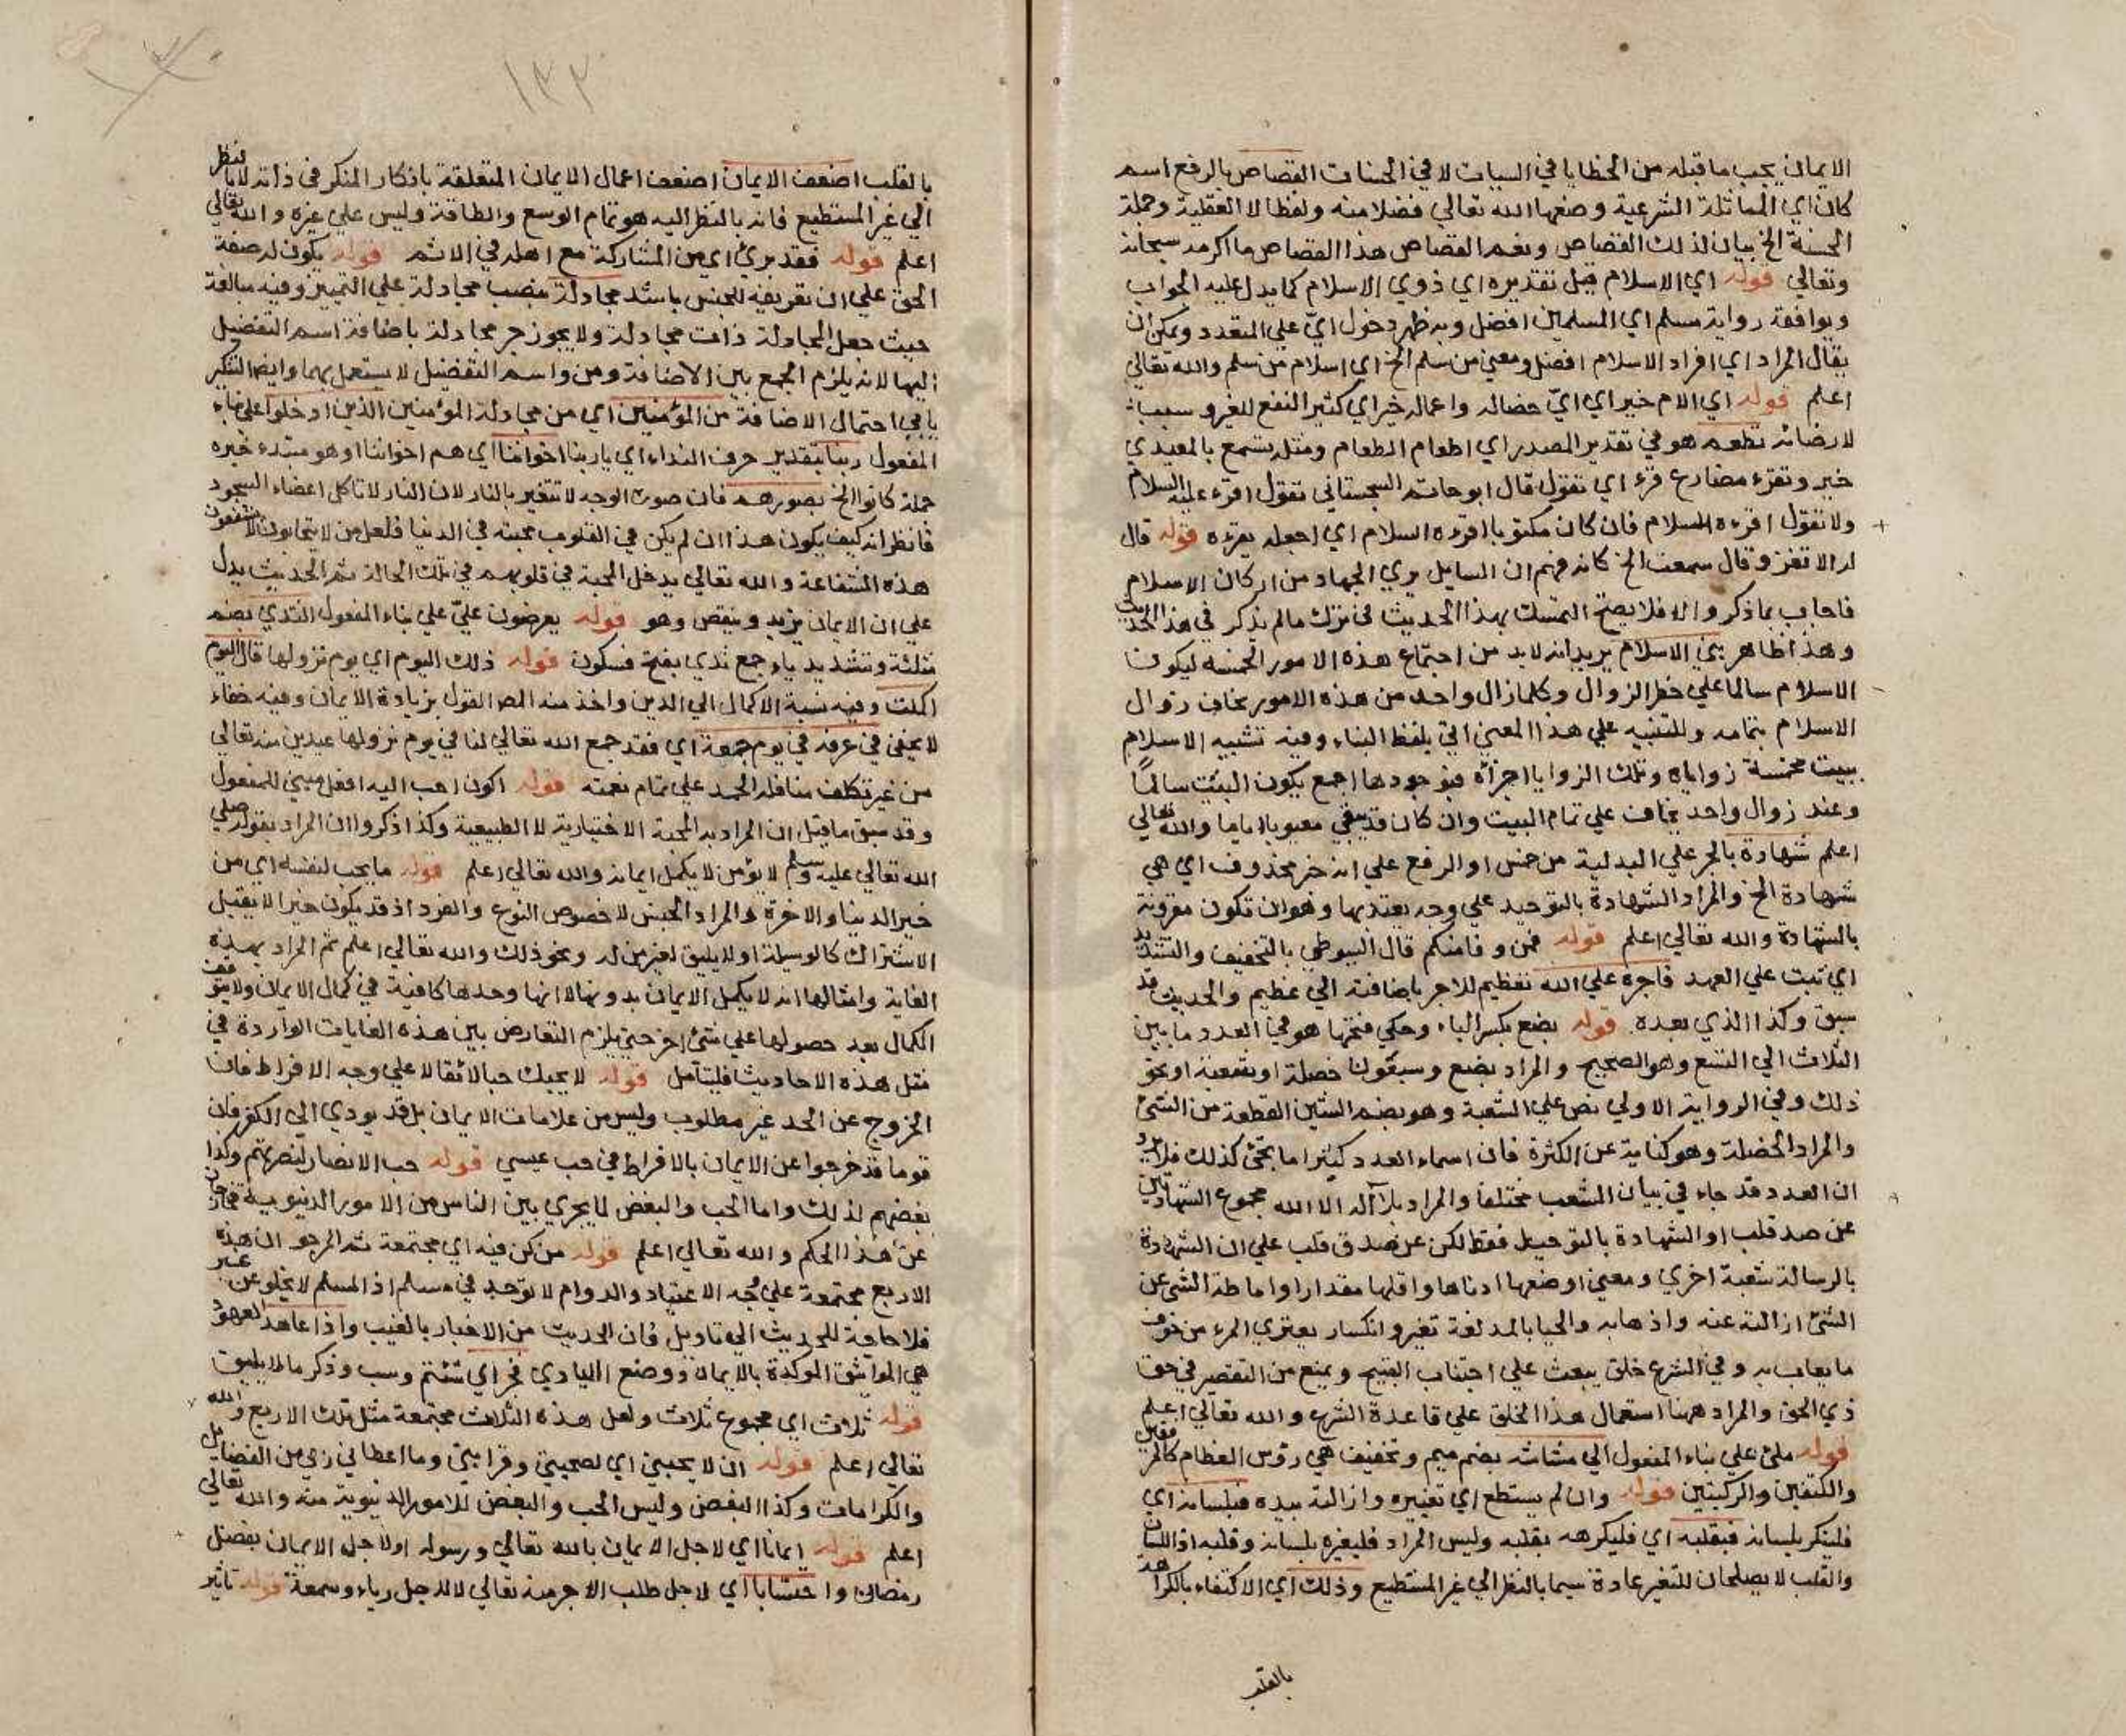 الايمان يجب ما قبله من الخطايا في السيات لا في الحسنات القصاص بالرفع اسم
كان اي المماثلة الشرعية وضعها الله تعالي فضلا منه ولفظا لا العقلية وجملة
الحسنة الخ بيان لذلك القصاص ونعم القصاص هذا القصاص ما اكرمه سبحانه
وتعالي قوله اي الاسلام قيل تقديره اي ذوي الاسلام كما يدل عليه الجواب
ويوافقه رواية مسلم اي المسلمين افضل وبه ظهر دخول اي علي المتعدد ويمكن ان
يقال المراد اي افراد الاسلام افضل ومعني من سلم الخ اي اسلام من سلم والله تعالي
اعلم قوله اي الام خير اي اي خصاله واعماله خير اي كثير النفع للغير وسبب
لارضائه تطعم هو في تقدير المصدر اي اطعام الطعام ومثله تسمع بالمعيدي
خير وتقرء مضارع قرء اي تقول قال ابو حاتم السجستاني تقول اقرء عليه السلام
ولا تقول اقرءه السلام فان كان مكتوبا اقرءه السلام اي اجعله يقرءه قوله قال
له الا تغزو قال سمعت الخ كانه فهم ان السايل يري الجهاد من اركان الاسلام
فاجاب بما ذكر والا فلا يصح التمسك بهذا الحديث في ترك مالم يذكر في هذا الحديث
وهذا ظاهر بني الاسلام يريد انه لابد من اجتماع هذه الامور الخمسه ليكون
الاسلام سالما علي خطر الزوال وكلما زال واحد من هذه الامور يخاف زوال
الاسلام بتمامه وللتنبيه علي هذا المعني اتي بلفظ البناء وفيه تشبيه الاسلام
ببيت مخمسة زواياه وتلك الزوايا اجزائه فبوجودها اجمع يكون البيت سالما
وعند زوال واحد يخاف علي تمام البيت وان كان قد يبقي معيوبا اياما والله تعالي
اعلم شهادة بالجر علي البدلية من خمس او الرفع علي انه خبر محذوف اي هي
شهادة الخ والمراد الشهادة بالتوحيد علي وجه يعتد بها وهو ان تكون مقرونة
بالشهادة والله تعالي اعلم قوله فمن وفا منكم قال السيوطي بالتخفيف والتشديد
اي ثبت علي العهد فاجره علي الله تعظيم للاجر باضافته الي عظيم والحديث قد
سبق وكذا الذي بعده قوله بضع بكسر الباء وحكي فتحها هو في العدد ما بين
الثلاث الي التسع وهو الصحيح والمراد بضع وسبعون خصلة او شعبة او نحو
ذلك وفي الرواية الاولي نص علي الشعبة وهو بضم الشين القطعة من الشئ
والمراد الخصلة وهو كناية عن الكثرة فان اسماء العدد كثيرا ما تجئ كذلك فلا يرد
ان العدد قد جاء في بيان الشعب مختلفا والمراد بلا اله الا الله مجموع الشهادتين
عن صدق قلب او الشهادة بالتوحيد فقط لكن عن صدق قلب علي ان الشهادة
بالرسالة شعبة اخري ومعني اوضعها ادناها واقلها مقدارا واماطة الشئ عن
الشئ ازالته عنه واذهابه والحيا بالمد لغة تغير وانكسار يعتري المرء من خوف
ما يعاب به وفي الشرع خلق يبعث علي اجتناب القبيح ويمنع من التقصير في حق
ذي الحق والمراد ههنا استعمال هذا الخلق علي قاعدة الشرع والله تعالي اعلم
قوله ملئ علي بناء المفعول الي مشاشه بضم ميم وتخفيف هي رؤس العظام كالمرفقين
والكتفين والركبتين قوله وان لم يستطع اي تغييره وازالته بيده فبلسانه اي
فلينكر بلسانه فبقلبه اي فليكرهه بقلبه وليس المراد فليغيره بلسانه وقلبه اذ اللسان
والقلب لا يصلحان للتغير عادة سيما بالنظر الي غير المستطيع وذلك اي الاكتفاء بالكراهة
بالقلب
١٣٢
بالقلب اضعف الايمان اضعف اعمال الايمان المتعلقة بانكار المنكر في ذاته لا بالنظر
الي غير المستطيع فانه بالنظر اليه هو تمام الوسع والطاقة وليس علي غيره والله تعالي
اعلم قوله فقد برئ اي من المشاركة مع اهله في الاثم قوله يكون له صفة
الحق علي ان تعريفه للجنس باشد مجادلة بنصب مجادلة علي التمييز وفيه مبالغة
حيث جعل المجادلة ذات مجادلة ولا يجوز جر مجادلة باضافة اسم التفضيل
اليها لانه يلزم الجمع بين الاضافة ومن واسم التفضيل لا يستعمل بهما وايضا التنكير
يابي احتمال الاضافة من المؤمنين اي من مجادلة المؤمنين الذين ادخلوا علي بناء
المفعول ربنا بتقدير حرف النداء اي يا ربنا اخواننا اي هم اخواننا او هو مبتدء خبره
جملة كانوا الخ بصورهم فان صورة الوجه لا تتغير بالنار لان النار لا تاكل اعضاء السجود
فانظر انه كيف يكون هذا ان لم يكن في القلوب محبته في الدنيا فلعل من لا يتحابون لا يشفعون
هذه الشفاعة والله تعالي يدخل المحبة في قلوبهم في تلك الحالة ثم الحديث يدل
علي ان الايمان يزيد وينقص وهو قوله يعرضون علي علي بناء المفعول الثدي بضم
مثلثة وتشديد ياء جمع ثدي بفتح فسكون قوله ذلك اليوم اي يوم نزولها قال اليوم
اكملت وفيه نسبة الاكمال الي الدين واخذ منه المص القول بزيادة الايمان وفيه خفاء
لا يخفي في عرفة في يوم جمعة اي فقد جمع الله تعالي لنا في يوم نزولها عيدين منه تعالي
من غير تكلف منا فله الحمد علي تمام نعمته قوله اكون احب اليه افعل مبني للمفعول
وقد سبق ما قيل ان المراد به المحبة الاختيارية لا الطبيعية وكذا ذكروا ان المراد بقوله صلي
الله تعالي عليه وسلم لا يؤمن لا يكمل ايمانه والله تعالي اعلم قوله ما يحب لنفسه اي من
خير الدنيا والاخرة والمراد الجنس لا خصوص النوع والفرد اذ قد يكون خيرا لا يقبل
الاشتراك كالوسيلة او لا يليق لغير من له ونحو ذلك والله تعالي اعلم ثم المراد بهذه
الغاية وامثالها انه لا يكمل الايمان بدونها لا انها وحدها كافية في كمال الايمان ولا يتوقف
الكمال بعد حصولها علي شئ اخر حتي يلزم التعارض بين هذه الغايات الواردة في
مثل هذه الاحاديث فليتامل قوله لا يحبك حبا لائقا لا علي وجه الافراط فان
الخروج عن الحد غير مطلوب وليس من علامات الايمان بل قد يودي الي الكفر فان
قوما قد خرجوا عن الايمان بالافراط في حب عيسي قوله حب الانصار لنصرتهم وكذا
بغضهم لذلك واما الحب والبغض لما يجري بين الناس من الامور الدنيوية فخارجان
عن هذا الحكم والله تعالي اعلم قوله من كن فيه اي مجتمعة ثم المرجو ان هذه
الاربع مجتمعة علي وجه الاعتياد والدوام لا توجد في مسلم اذ المسلم لا يخلو عن
فلا حاجة للحديث الي تاويل فان الحديث من الاخبار بالغيب واذا عاهد العهود
هي المواثيق الموكدة بالايمان ووضع الايادي فجر اي شتم وسب وذكر مالا يليق
قوله ثلاث اي مجموع ثلاث ولعل هذه الثلاث مجتمعة مثل تلك الاربع والله
تعالي اعلم قوله ان لا يحبني اي لصحبتي وقرابتي وما اعطاني ربي من الفضايل
والكرامات وكذا البغض وليس الحب والبغض للامور الدنيوية منه والله تعالي
اعلم قوله ايمانا اي لاجل الايمان بالله تعالي ورسوله او لاجل الايمان بفضل
رمضان واحتسابا اي لاجل طلب الاجر منه تعالي لا لاجل رياء وسمعة قوله تاثير